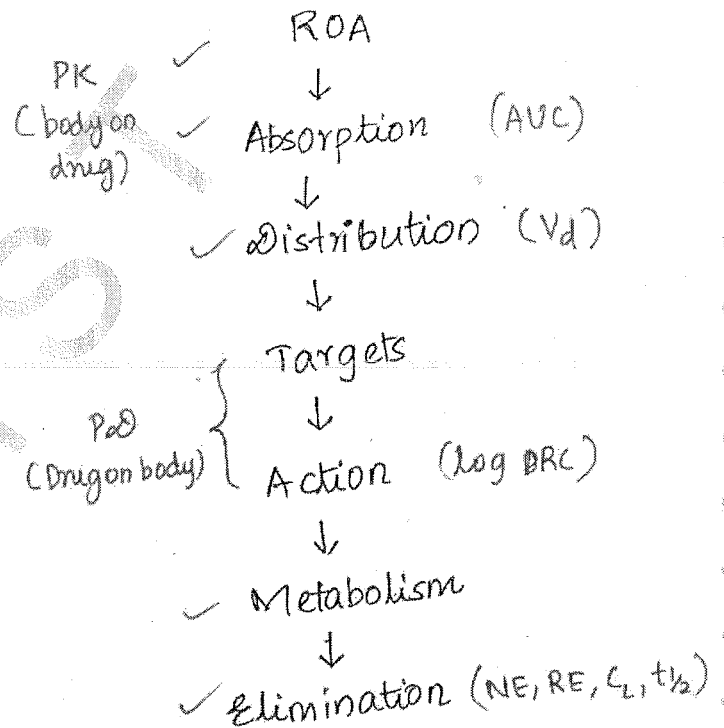 ROA
↓
PK
(body on
drug)
✓ Absorption (AUC)
↓
✓ Distribution (Vd)
↓
Targets
↓
PoD
(Drug on body)
Action (log DRC)
↓
✓ Metabolism
↓
✓ Elimination (NE, RE, CL, t½)